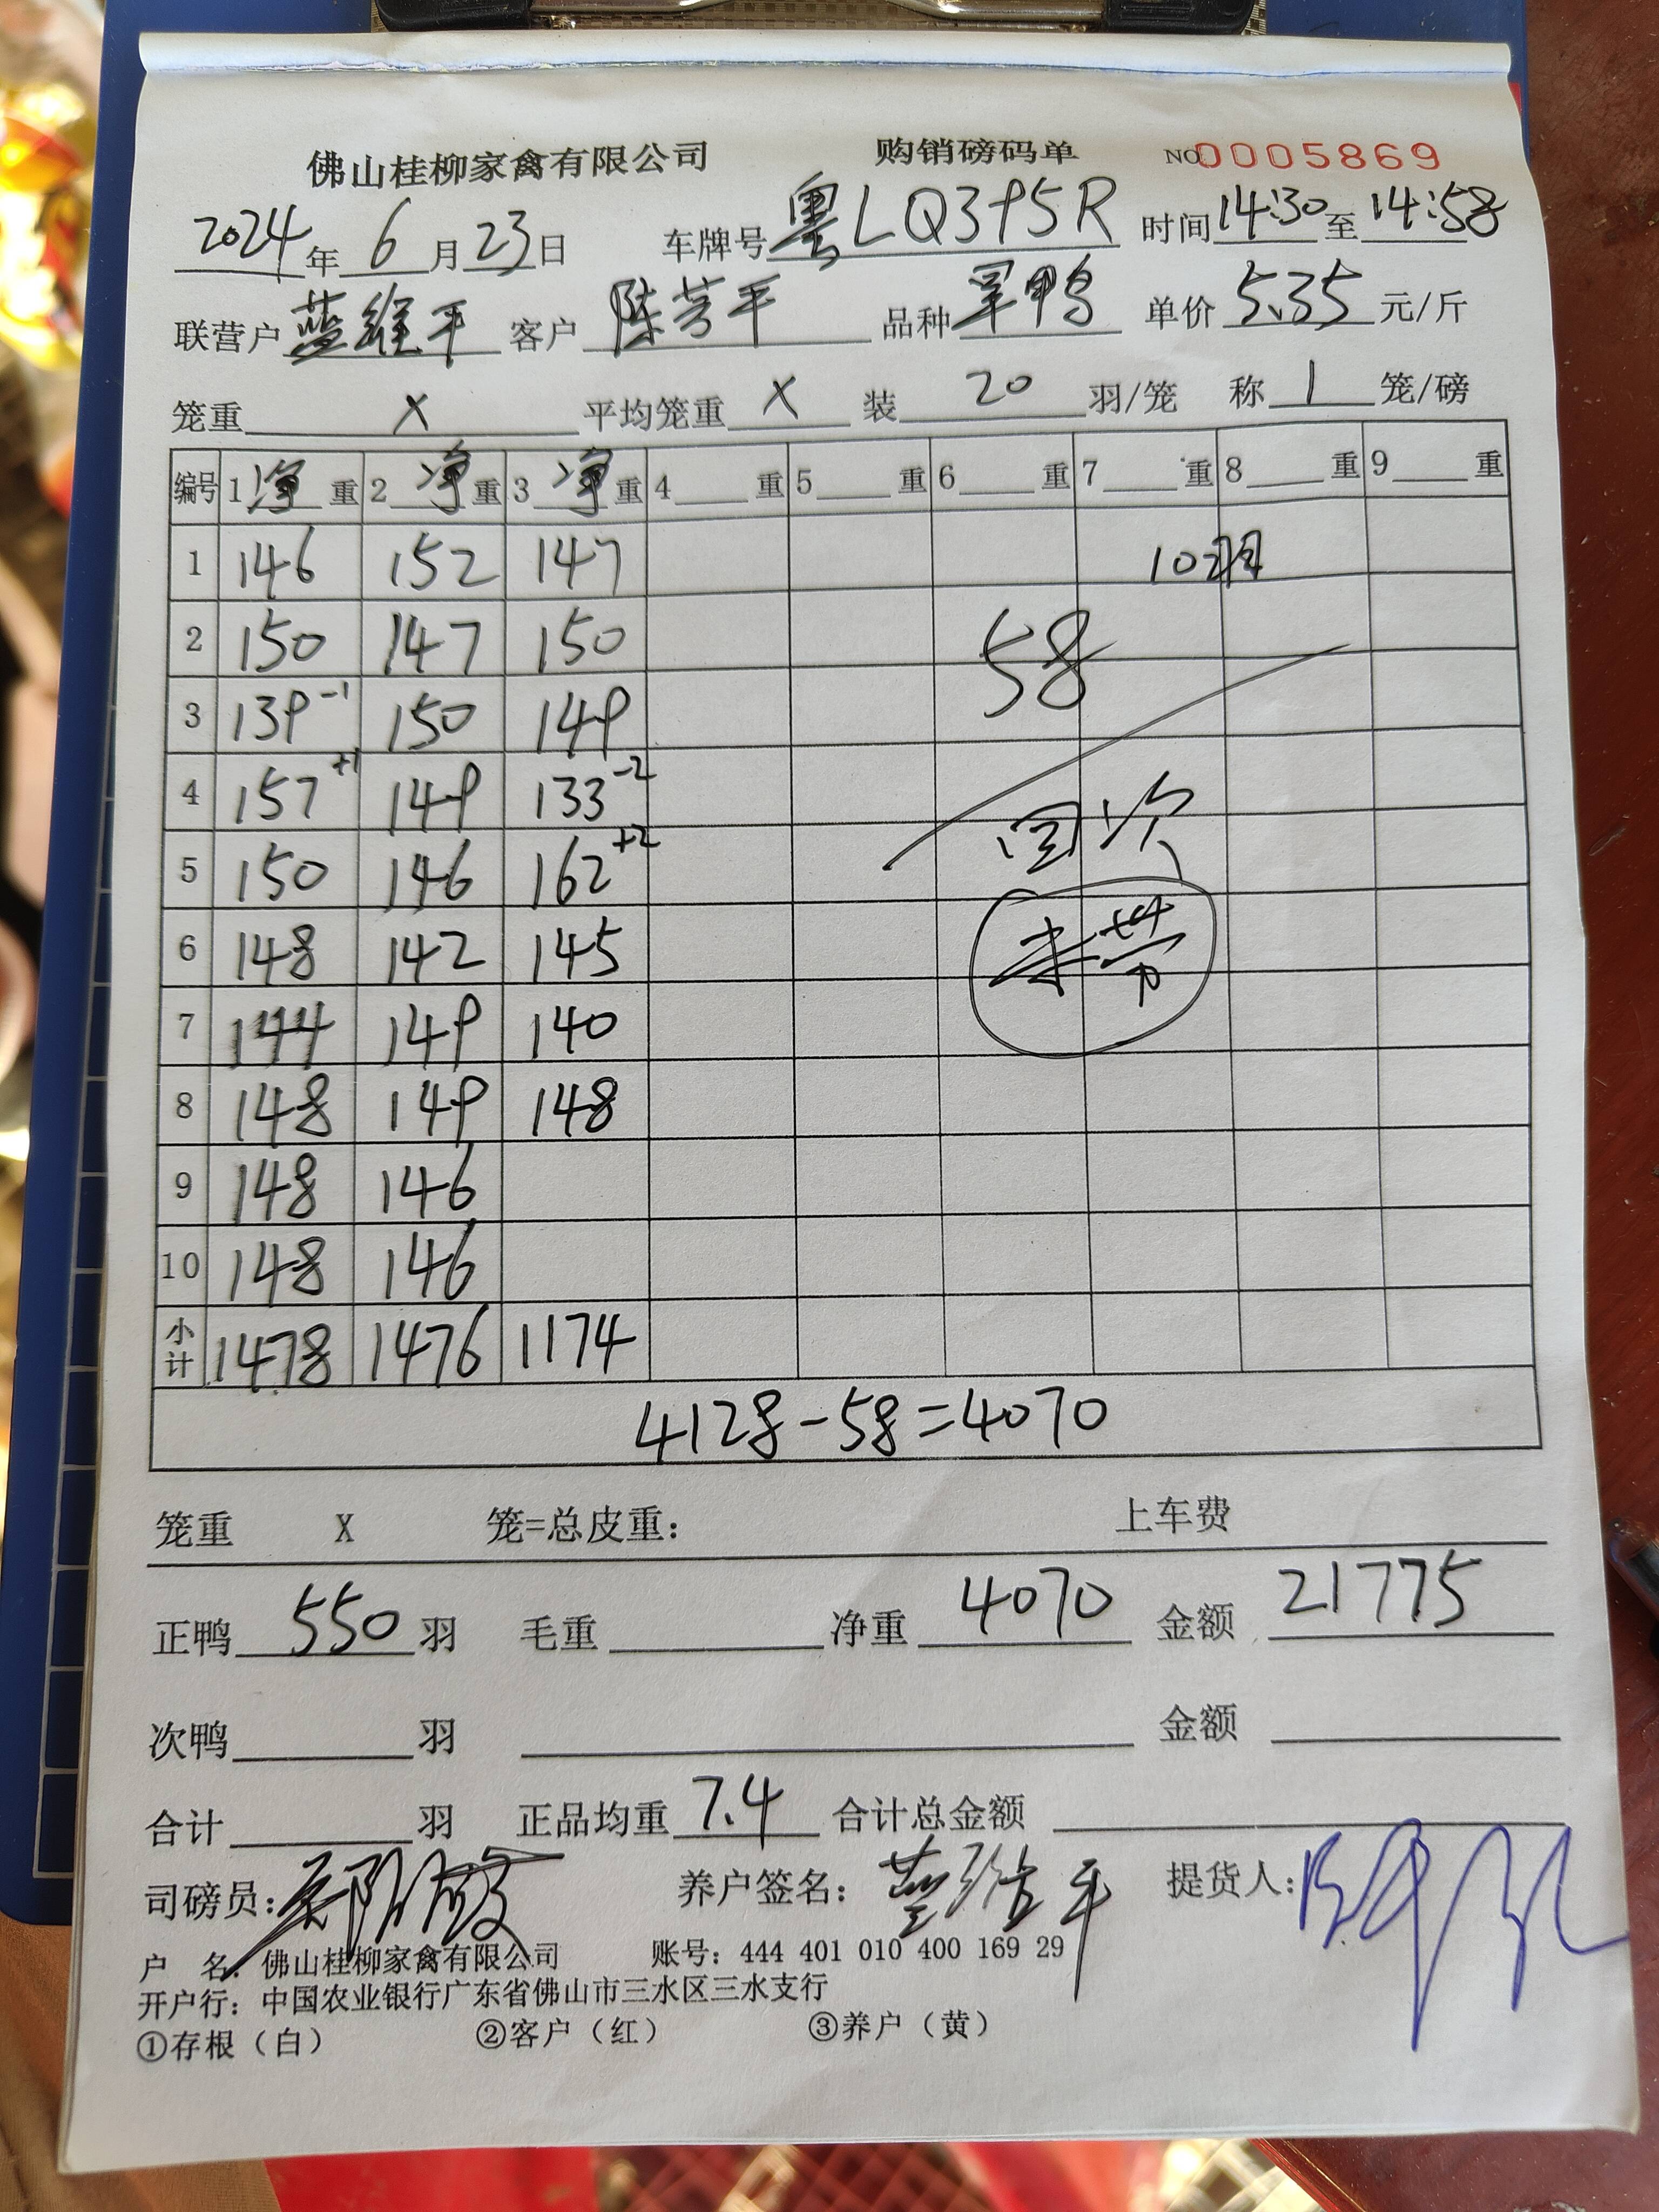 佛山桂柳家禽有限公司 购销磅码单 NO 0005869
2024年6月23日 车牌号粤LQ395R 时间14:30至14:58
联营户蓝维平 客户陈芳平 品种旱鸭 单价5.35元/斤
笼重 X 平均笼重 X 装 20 羽/笼 称 1 笼/磅
编号 1净重 2净重 3净重 4 重 5 重 6 重 7 重 8 重 9 重
1 146 152 147 10羽
2 150 147 150 58
3 139-1 150 149
4 157+1 149 133-2 回次
5 150 146 162+2
6 148 142 145 未劳
7 144 149 140
8 148 149 148
9 148 146
10 148 146
小计 1478 1476 1174
4128-58=4070
笼重 X 笼=总皮重: 上车费
正鸭 550 羽 毛重 净重 4070 金额 21775
次鸭 羽 金额
合计 羽 正品均重 7.4 合计总金额
司磅员: 养户签名: 提货人:
户 名: 佛山桂柳家禽有限公司 账号: 444 401 010 400 169 29
开户行: 中国农业银行广东省佛山市三水区三水支行
①存根(白) ②客户(红) ③养户(黄)